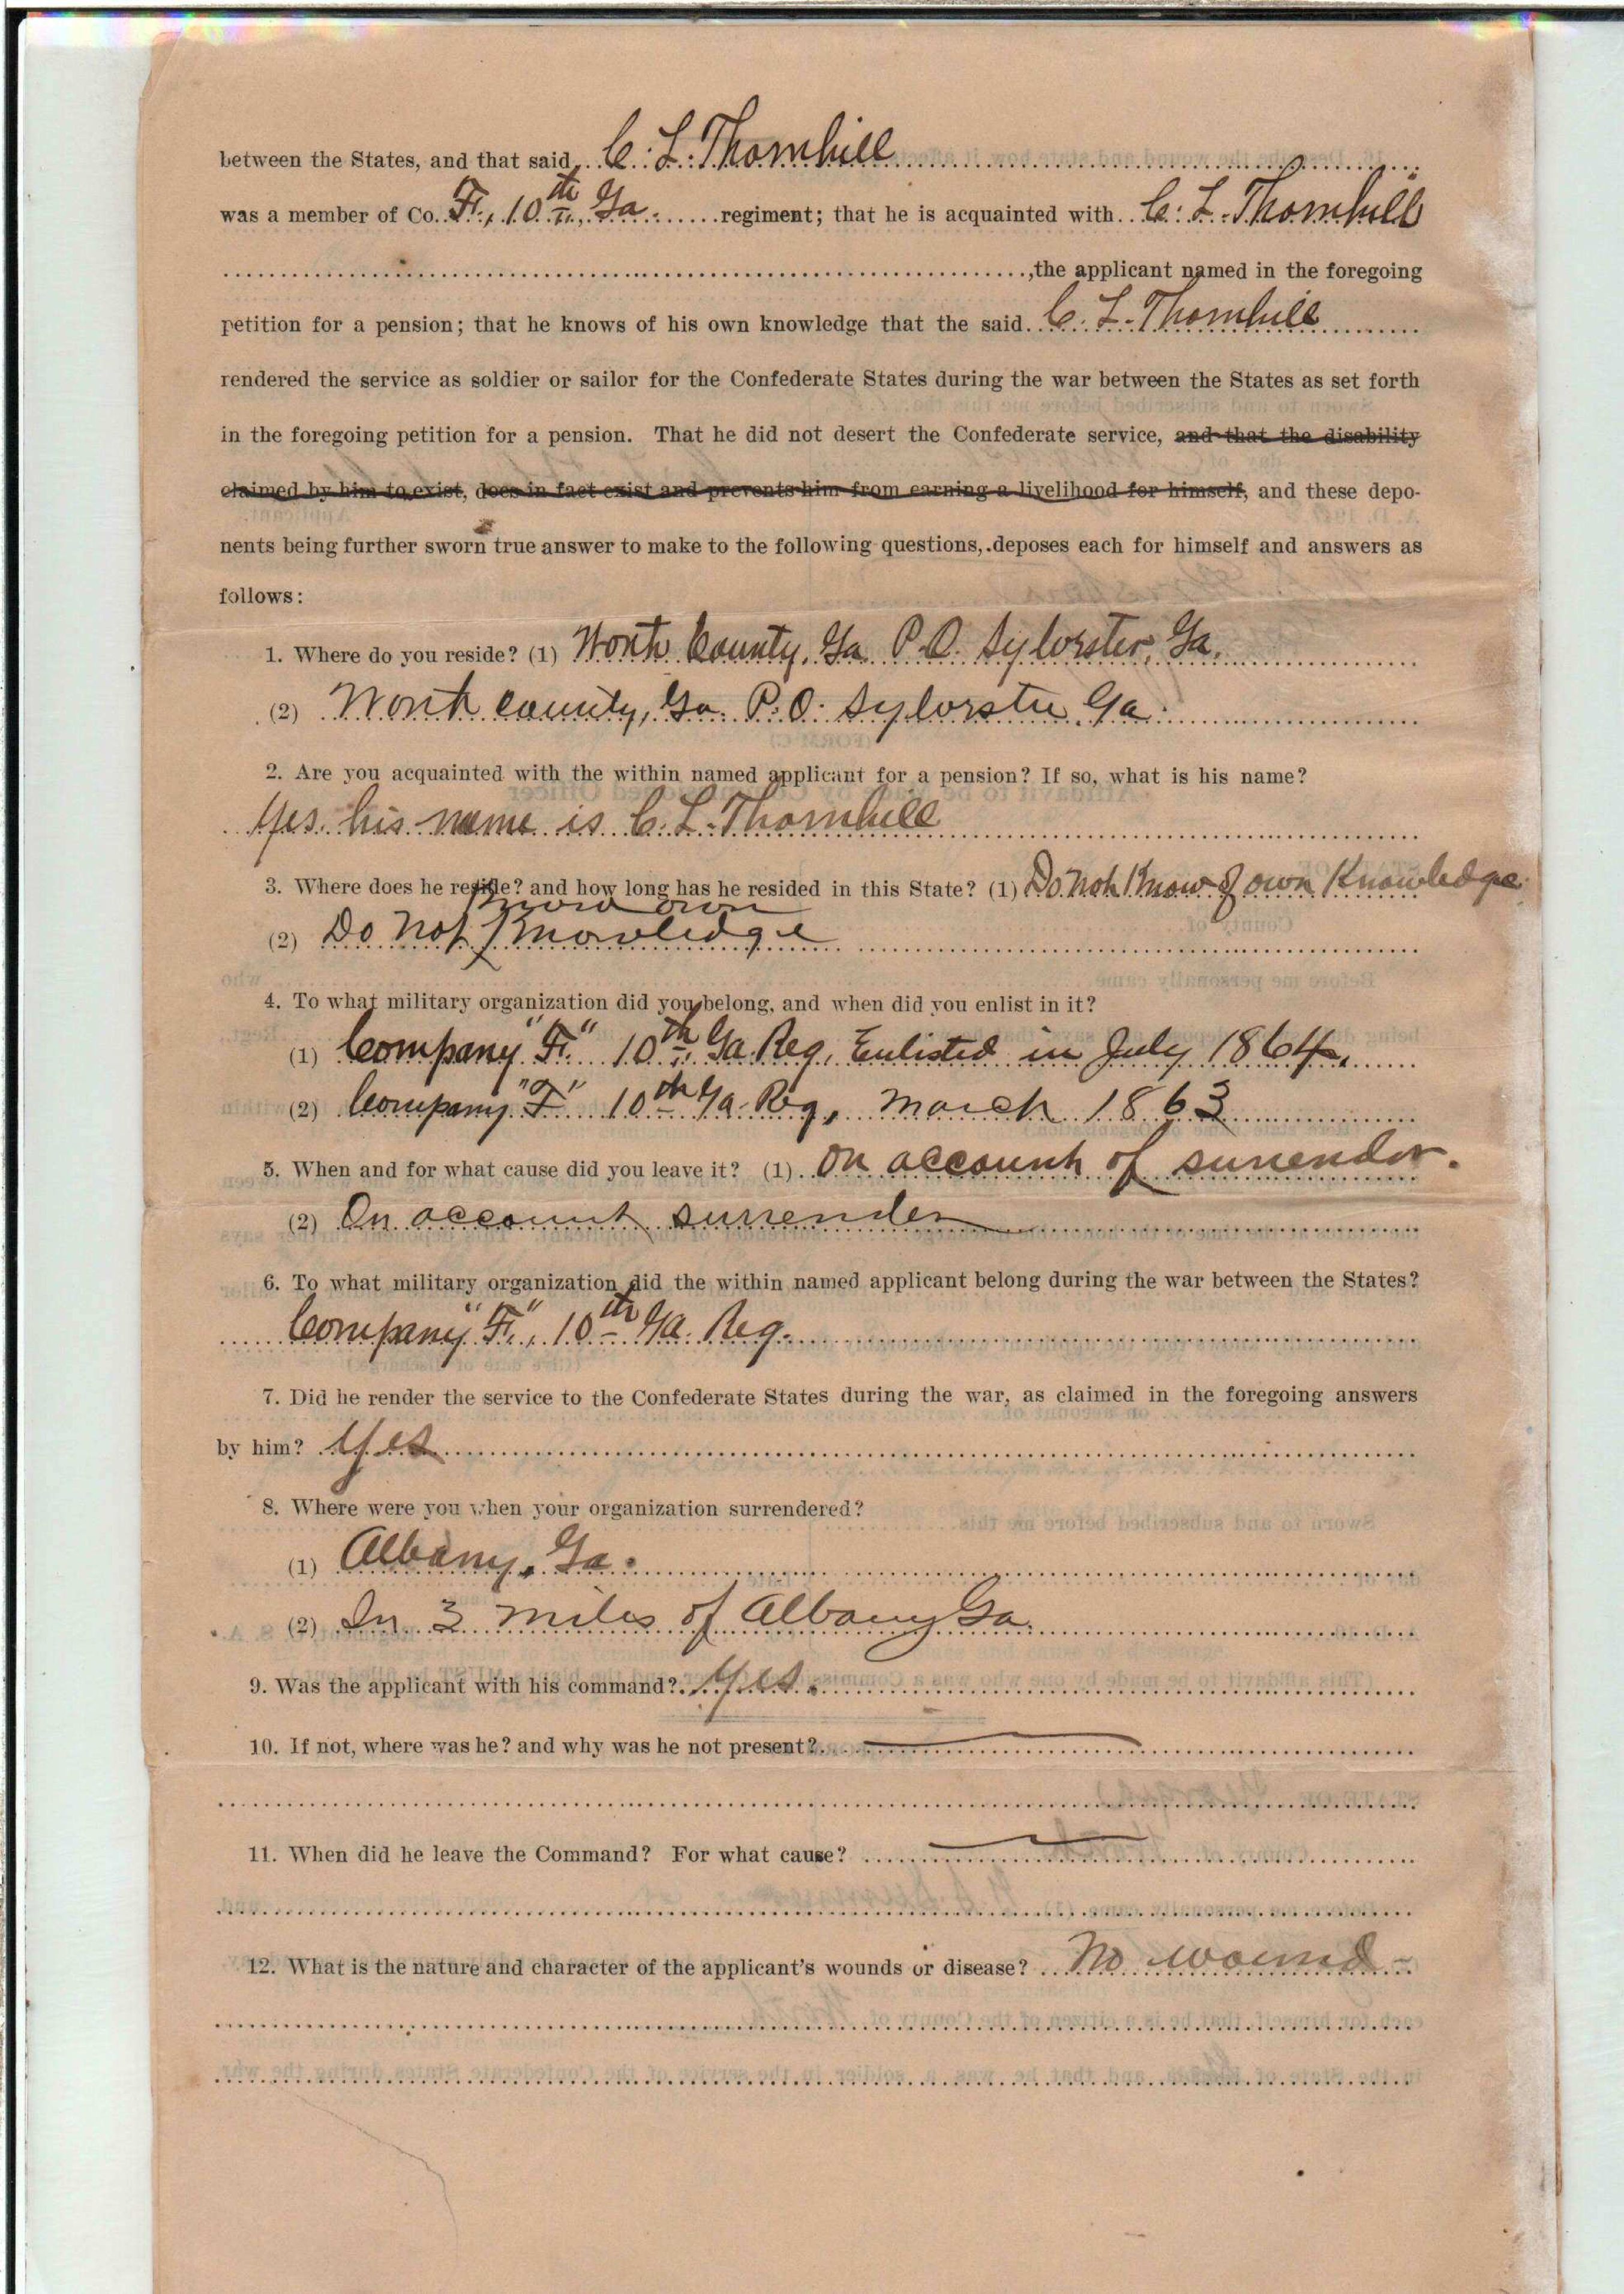 between the States, and that said C. L. Thornhill
was a member of Co. F., 10th Ga. regiment; that he is acquainted with C. L. Thornhill
,the applicant named in the foregoing
petition for a pension; that he knows of his own knowledge that the said C. L. Thornhill
rendered the service as soldier or sailor for the Confederate States during the war between the States as set forth
in the foregoing petition for a pension. That he did not desert the Confederate service, and that the disability
claimed by him to exist, does in fact exist and prevents him from earning a livelihood for himself, and these depo-
nents being further sworn true answer to make to the following questions, deposes each for himself and answers as
follows:
1. Where do you reside? (1) Worth County, Ga. P.O. Sylvester, Ga.
(2) Worth County, Ga. P.O. Sylvester Ga.
2. Are you acquainted with the within named applicant for a pension? If so, what is his name?
Yes his name is C. L. Thornhill
3. Where does he reside? and how long has he resided in this State? (1) Do not Know of own Knowledge
know own
(2) Do not Knowledge
4. To what military organization did you belong, and when did you enlist in it?
(1) Company "F." 10th Ga. Reg. Enlisted in July 1864.
(2) Company "F" 10th Ga. Reg, March 1863
5. When and for what cause did you leave it? (1) On account of surrender.
(2) On account surrender
6. To what military organization did the within named applicant belong during the war between the States?
Company "F.", 10th Ga. Reg.
7. Did he render the service to the Confederate States during the war, as claimed in the foregoing answers
by him? Yes
8. Where were you when your organization surrendered?
(1) Albany, Ga.
(2) In 3 miles of Albany Ga.
9. Was the applicant with his command? Yes.
10. If not, where was he? and why was he not present?
11. When did he leave the Command? For what cause?
12. What is the nature and character of the applicant's wounds or disease? No wound